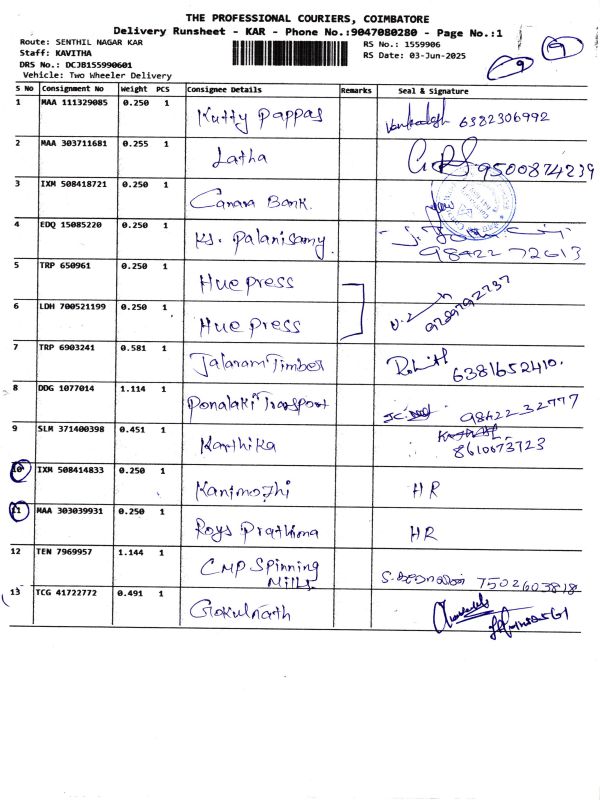 THE PROFESSIONAL COURIERS, COIMBATORE
Delivery Runsheet - KAR - Phone No.:9047080280 - Page No.:1
Route: SENTHIL NAGAR KAR
Staff: KAVITHA
DRS No.: DCJB155990601
Vehicle: Two Wheeler Delivery
RS No.: 1559906
RS Date: 03-Jun-2025
9 9
S No Consignment No Weight PCS Consignee Details Remarks Seal & Signature
1 MAA 111329085 0.250 1 Kutty Pappas Venkadesh 6382306992
2 MAA 303711681 0.255 1 Latha 9500874239
3 IXM 508418721 0.250 1 Canara Bank.
4 EDQ 15085220 0.250 1 Ks. Palanisamy 98422 72613
5 TRP 650961 0.250 1 Hue press
6 LDH 700521199 0.250 1 Hue press 9789792737
7 TRP 6903241 0.581 1 Jalaram Timber Rohith 6381652410.
8 DDG 1077014 1.114 1 Ponalaki Transport 98422 32777
9 SLM 371400398 0.451 1 Karthika 8610673723
10 IXM 508414833 0.250 1 Kanimozhi HR
11 MAA 303039931 0.250 1 Roys Prathima HR
12 TEN 7969957 1.144 1 CMP Spinning Mills 7502603818
13 TCG 41722772 0.491 1 Gokulnath